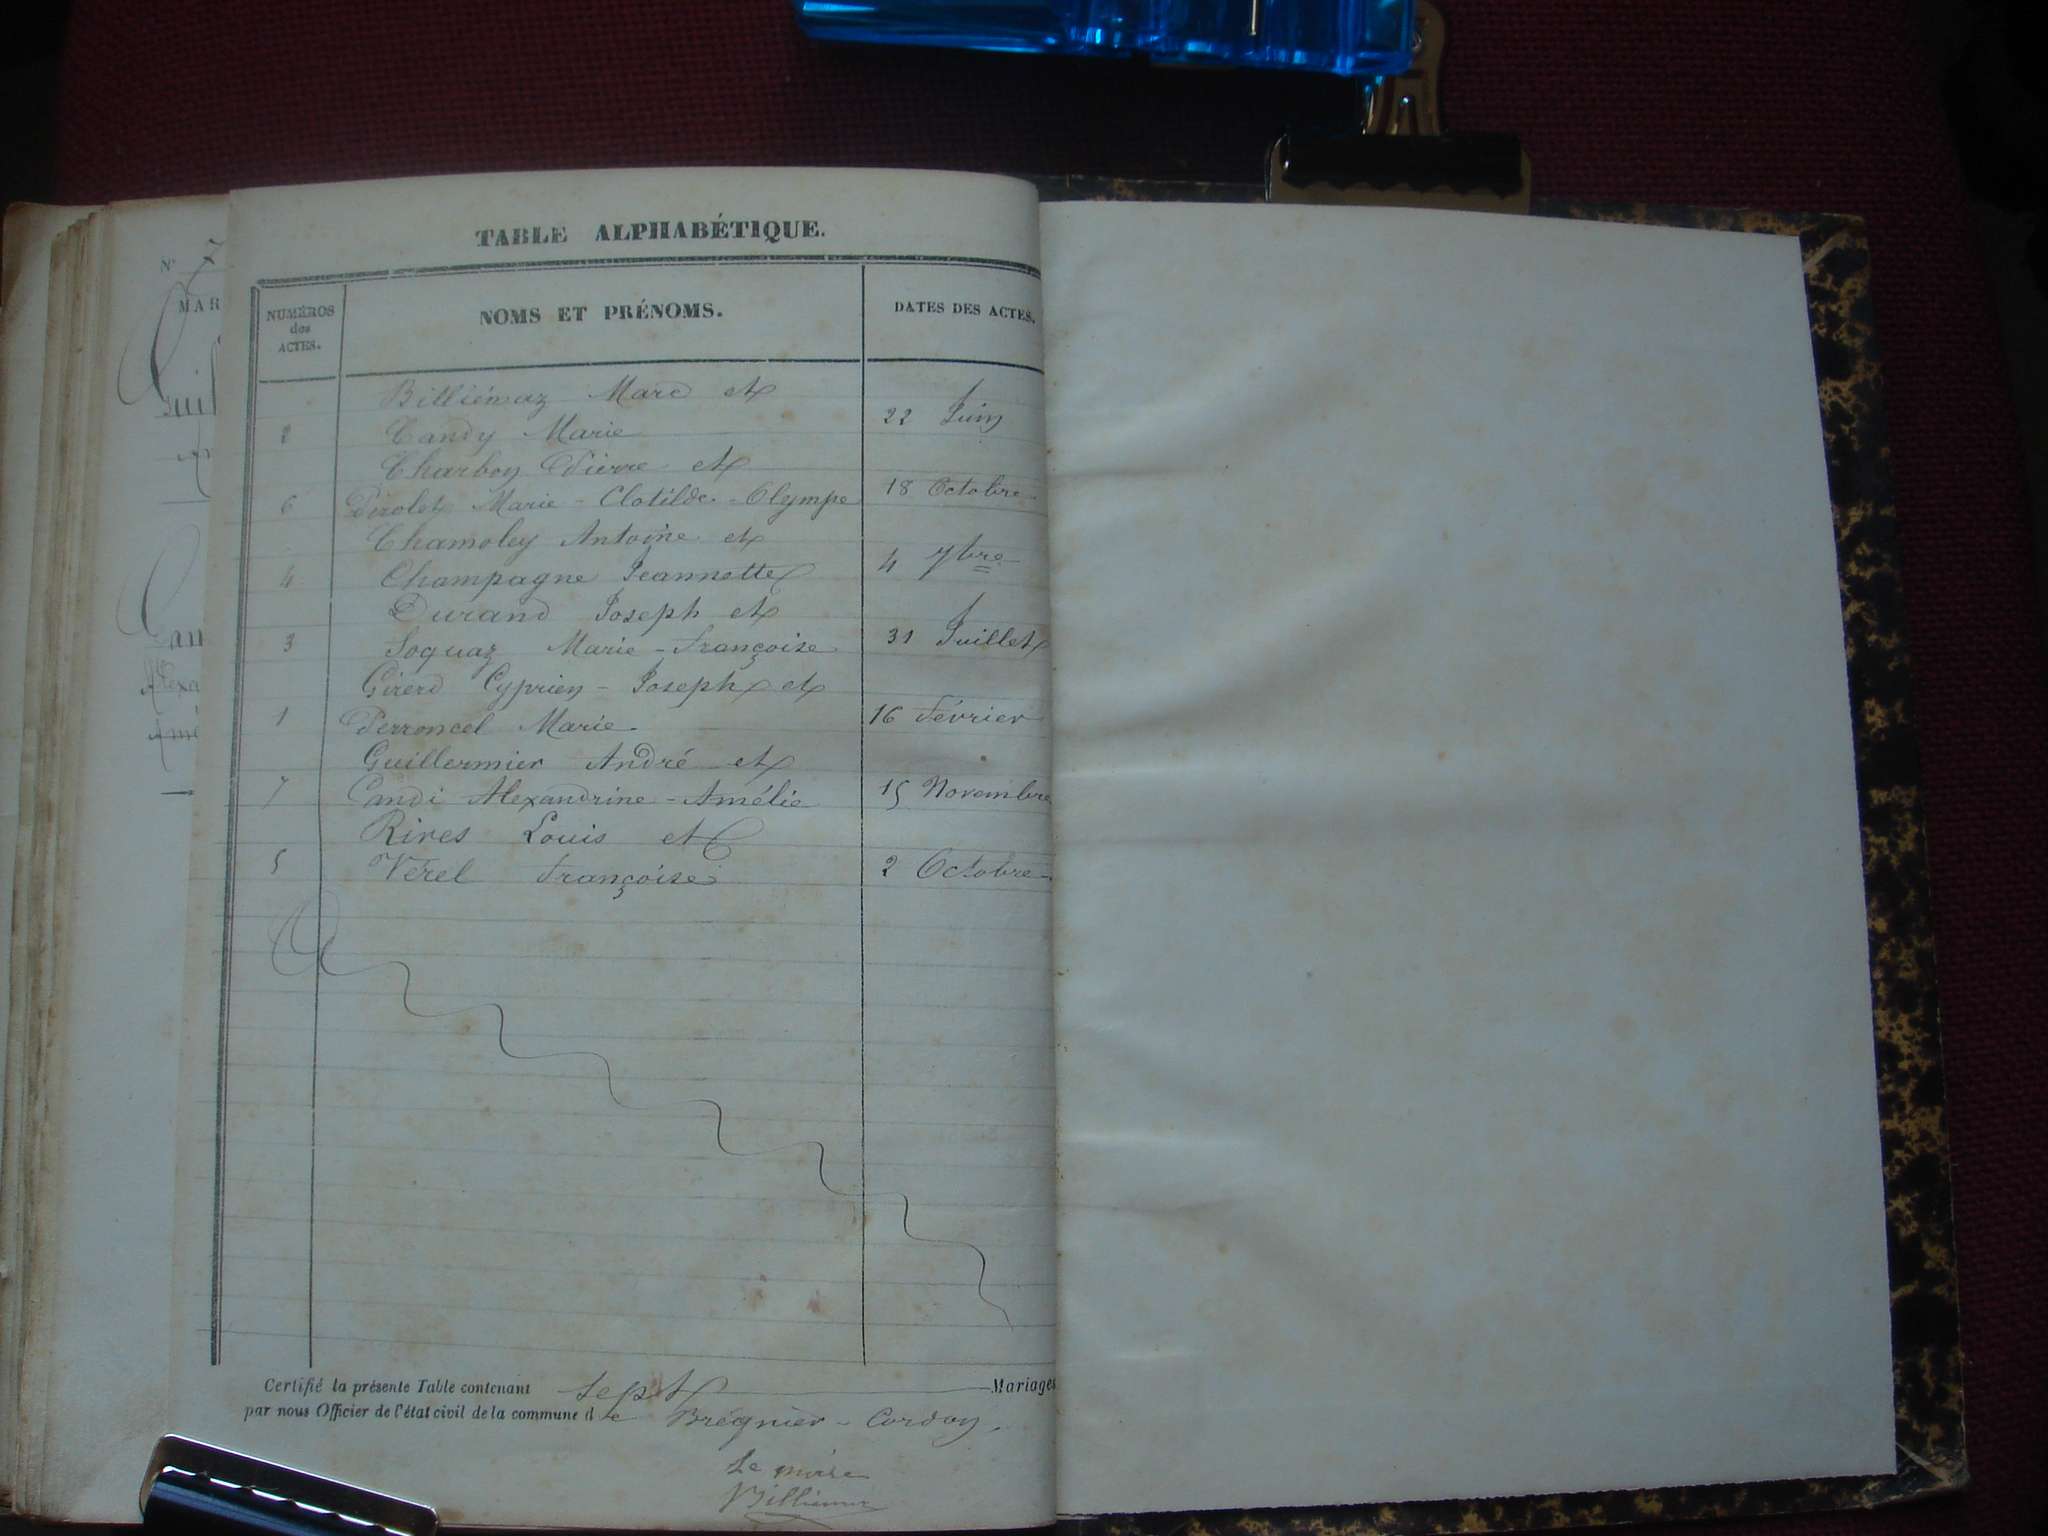 N° 7
MAR
TABLE ALPHABÉTIQUE.
NUMÉROS des ACTES.
NOMS ET PRÉNOMS.
DATES DES ACTES.
Billiémaz Marc et
2 Candy Marie 22 Juin
Charbon Pierre et
6 Pirolet Marie-Clotilde-Olympe 18 Octobre
Chamoley Antoine et
4 Champagne Jeannette 4 7bre
Durand Joseph et
3 Soquaz Marie-Françoise 31 Juillet
Girerd Cyprien-Joseph et
1 Perroncel Marie 16 Février
Guillermier André et
7 Candi Alexandrine-Amélie 15 Novembre
Rives Louis et
5 Vérel Françoise 2 Octobre
Certifié la présente Table contenant sept Mariages
par nous Officier de l'état civil de la commune de Brégnier-Cordon.
Le maire
Billiémaz